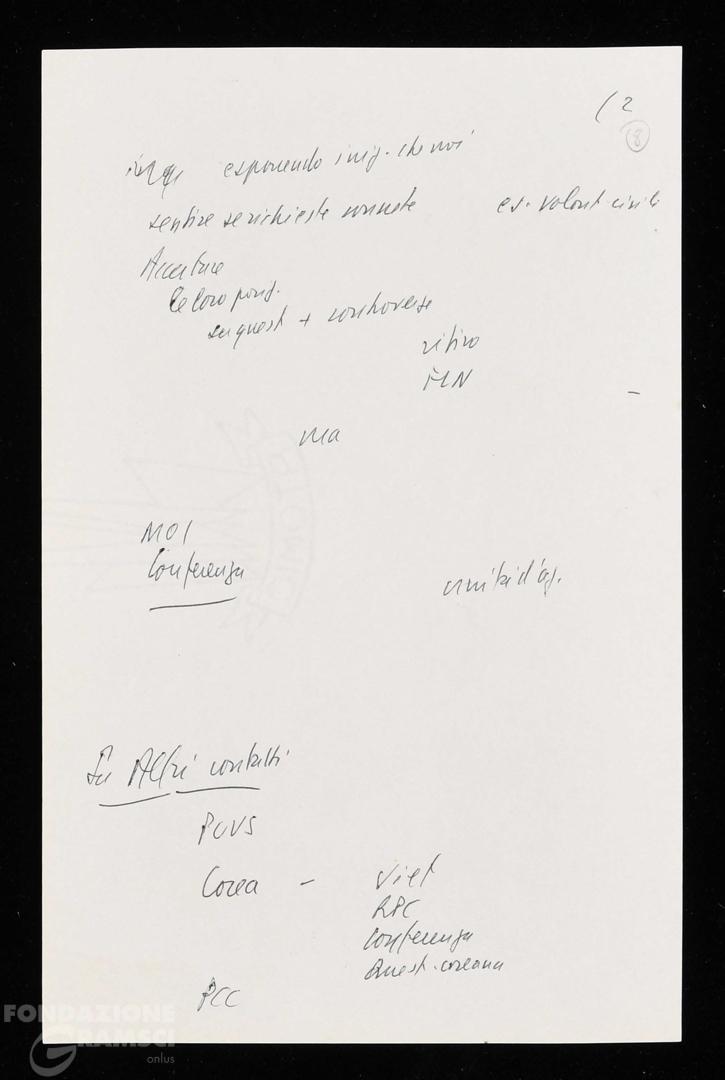 ( 2
8
esponendo
sentire se richieste concrete es. volont civili
Accertare
le loro posiz.
su quest + controverse
ritiro
FLN
ma
MOI
Conferenza
unità d'az.
Su Altri contatti
PCUS
Corea - Viet
RPC
Conferenza
Quest. coreana
PCC
FONDAZIONE
GRAMSCI
onlus